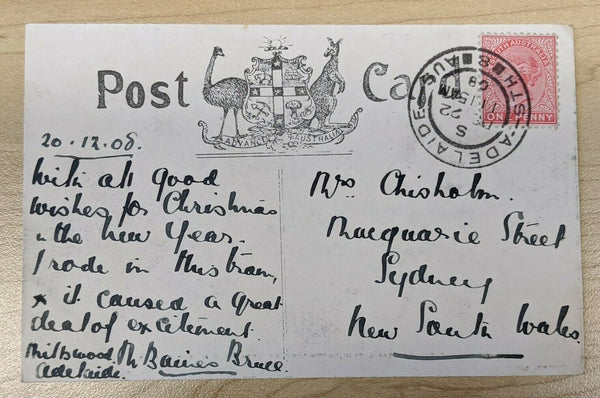 Post Ca
ADVANCE AUSTRALIA
SOUTH AUSTRALIA
ONE PENNY
ADELAIDE STH AUS
S
22
08
20.12.08.
With all good
wishes for Christmas
& the New Year.
I rode in this train,
& it caused a great
deal of excitement.
Millswood M Baines Bruce
Adelaide.
Mrs Chisholm.
Macquarie Street
Sydney
New South Wales.